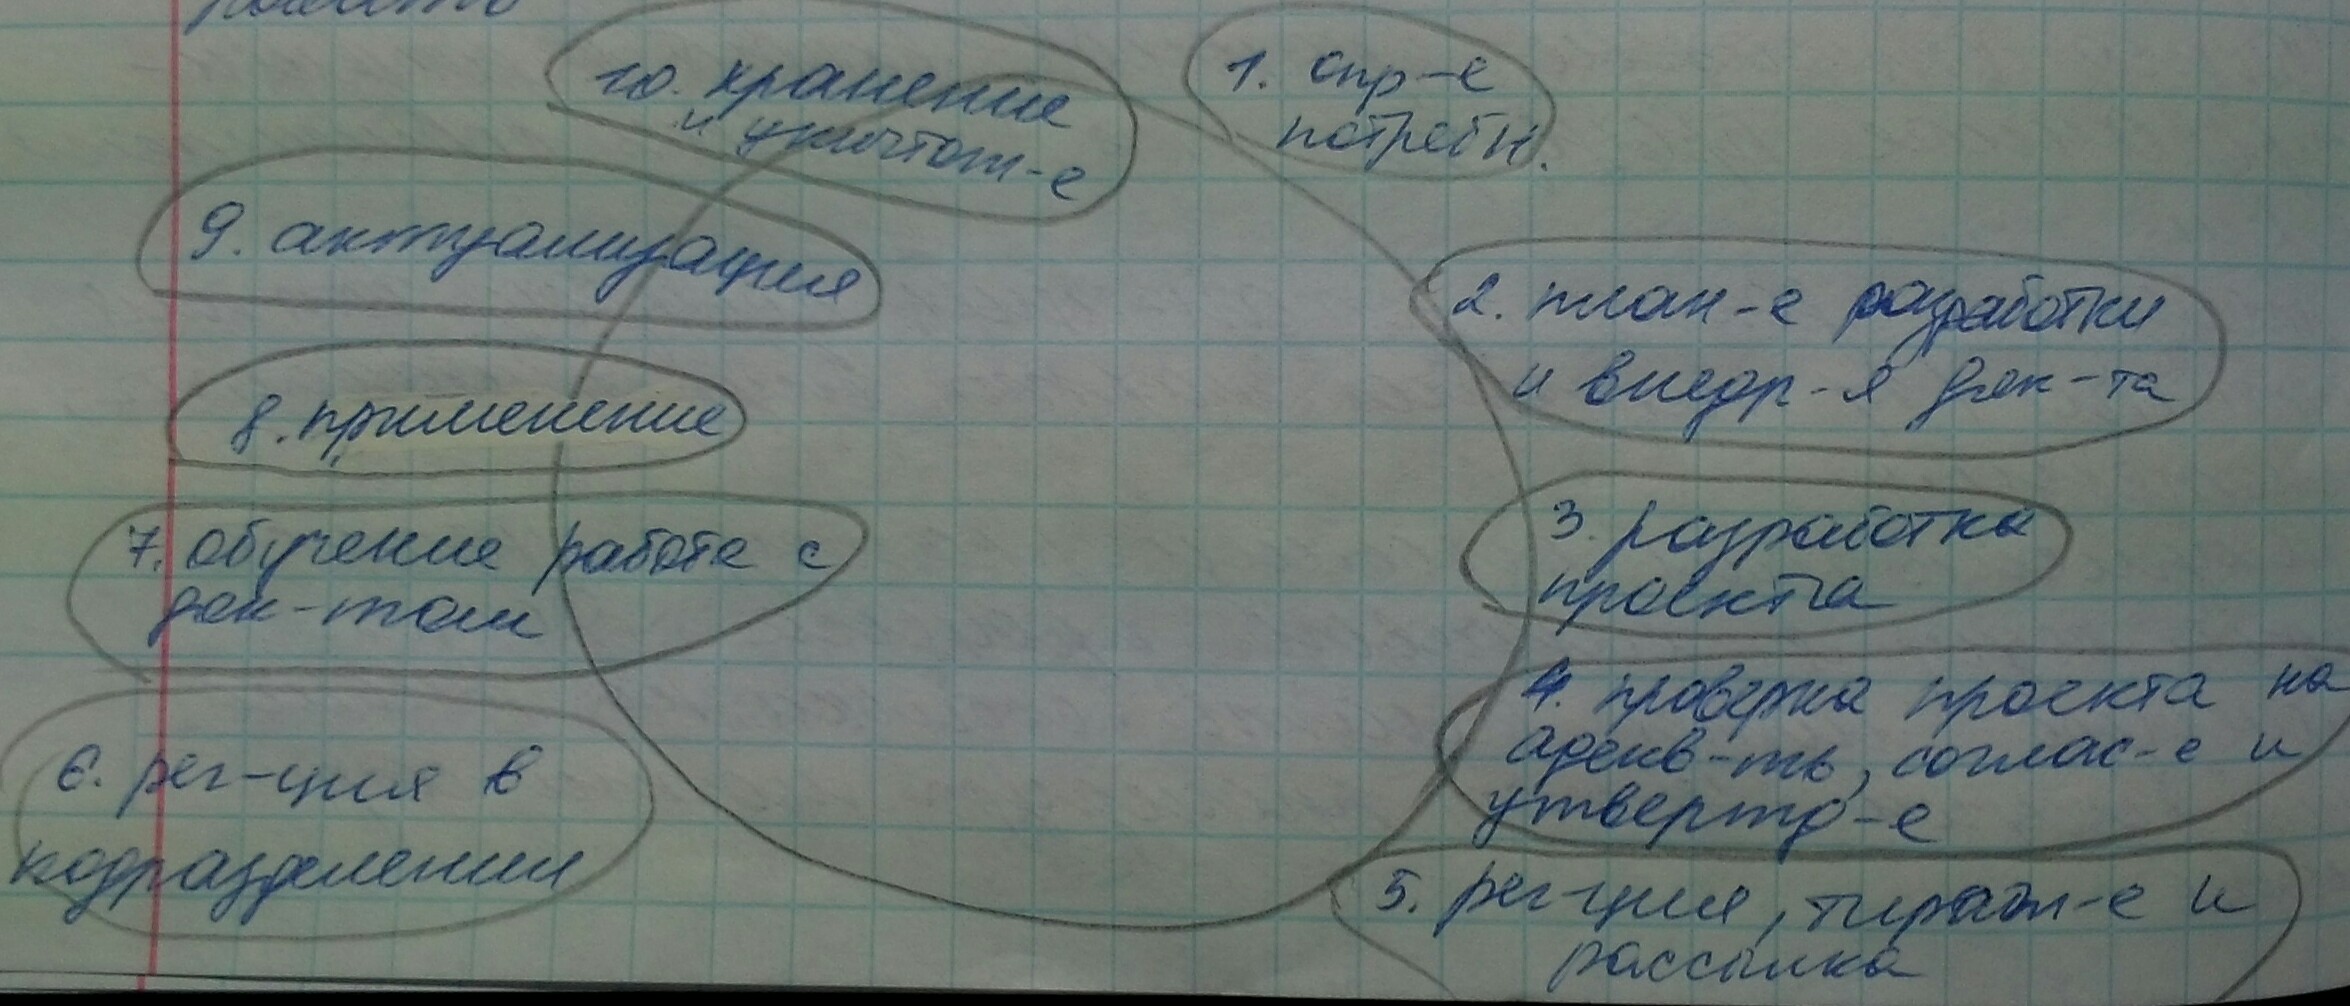 1. опр-е
потребн.
2. план-е разработки
и внедр-я док-та
3. разработка
проекта
4. проверка проекта на
адекв-ть, соглас-е и
утвержд-е
5. рег-ция, тираж-е и
рассылка
6. рег-ция в
подразделении
7. обучение работе с
док-том
8. применение
9. актуализация
10. хранение
и уничтож-е